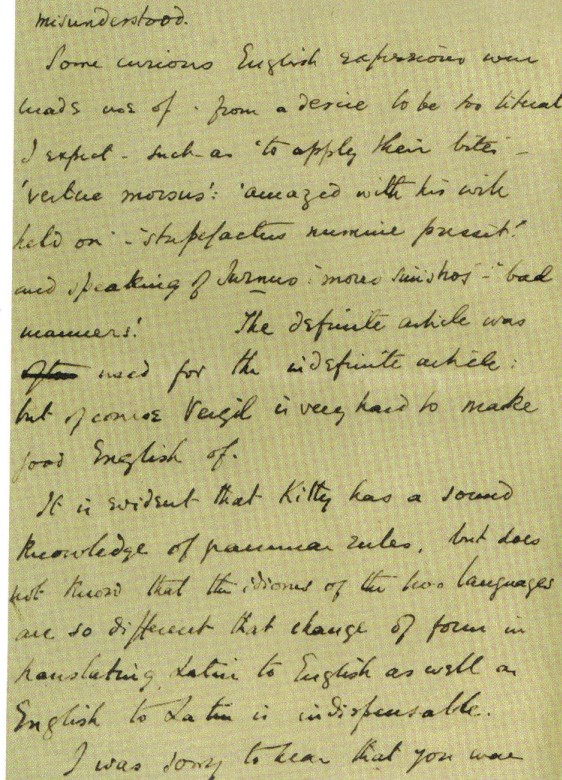 misunderstood.
Some curious English expressions were
made use of - from a desire to be too literal
I expect - such as 'to apply their bites' -
'vertue morsus': 'amazed with his
held on' - 'stupefactus numine pressit'.
and speaking of Turnus: 'mores sinistros' - 'bad
manners'. The definite article was
often used for the indefinite article:
but of course Vergil is very hard to make
good English of.
It is evident that Kitty has a sound
knowledge of grammar rules, but does
not know that the idioms of the two languages
are so different that change of form in
translating Latin to English as well as
English to Latin is indispensable.
I was sorry to hear that you were